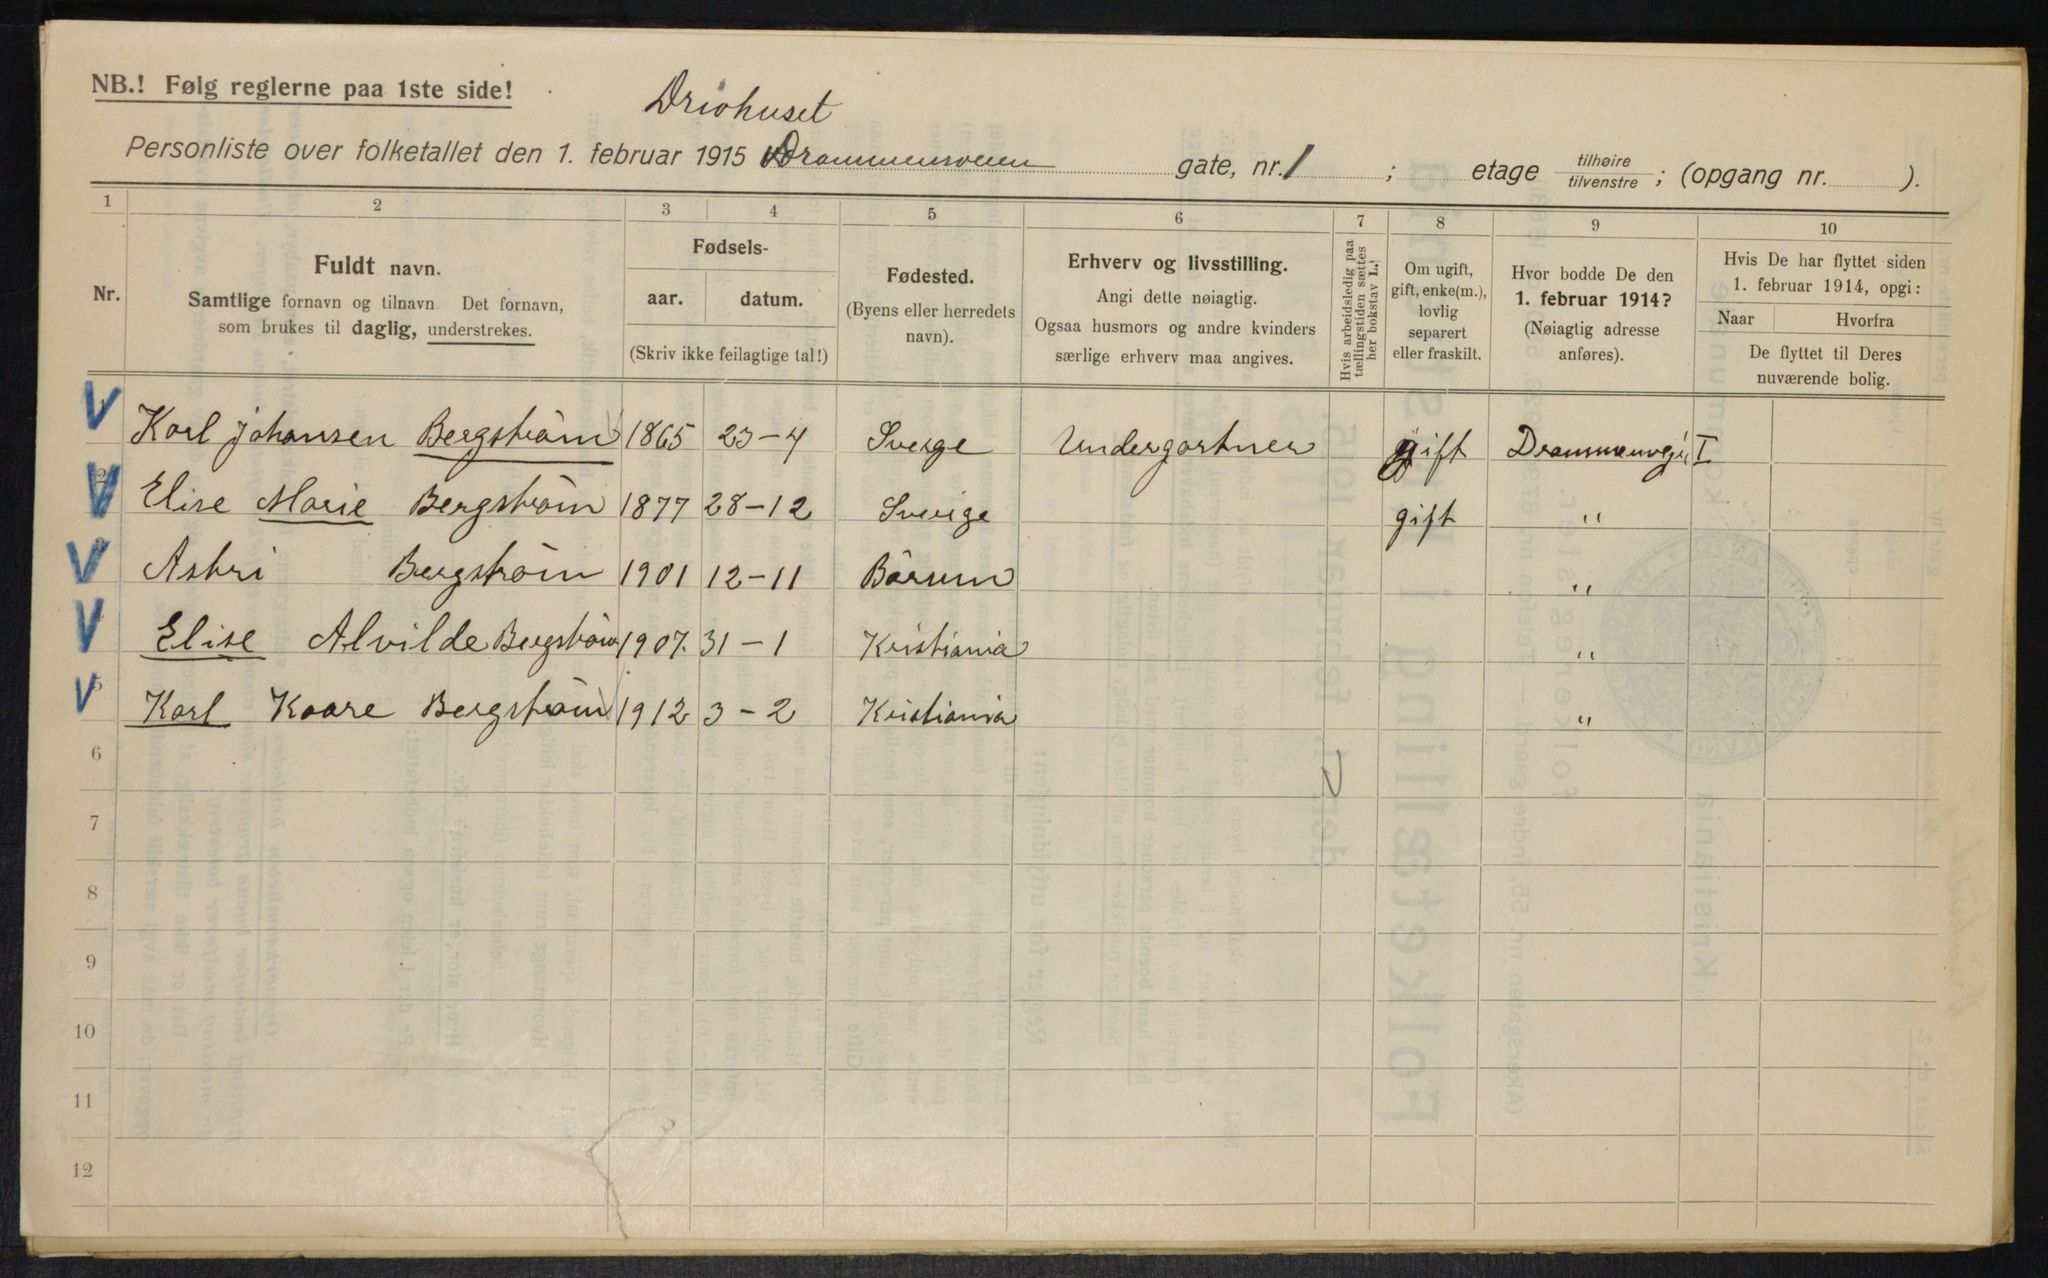 NB.! Følg reglerne paa 1ste side!
Drivhuset
Personliste over folketallet den 1. februar 1915 Drammensveien gate, nr. 1 ; etage tilhøire / tilvenstre ; (opgang nr. ).
1 2 3 4 5 6 7 8 9 10
Nr.
Fuldt navn.
Samtlige fornavn og tilnavn. Det fornavn,
som brukes til daglig, understrekes.
Fødsels-
aar. datum.
(Skriv ikke feilagtige tal!)
Fødested.
(Byens eller herredets
navn).
Erhverv og livsstilling.
Angi dette nøiagtig.
Ogsaa husmors og andre kvinders
særlige erhverv maa angives.
Hvis arbeidsledig paa
tællingstiden sættes
her bokstav L.!
Om ugift,
gift, enke(m.),
lovlig
separert
eller fraskilt.
Hvor bodde De den
1. februar 1914?
(Nøiagtig adresse
anføres).
Hvis De har flyttet siden
1. februar 1914, opgi:
Naar Hvorfra
De flyttet til Deres
nuværende bolig.
V Karl Johansen Bergström 1865 23-4 Sverge Undergartner gift Drammenvej, I
V 2 Elise Marie Bergström 1877 28-12 Sverige gift "
V Astri Bergström 1901 12-11 Bärum "
V Elise Alvilde Bergström 1907. 31-1 Kristiania "
V 5 Karl Kaare Bergström 1912 3-2 Kristiania "
6
7
8
9
10
11
12